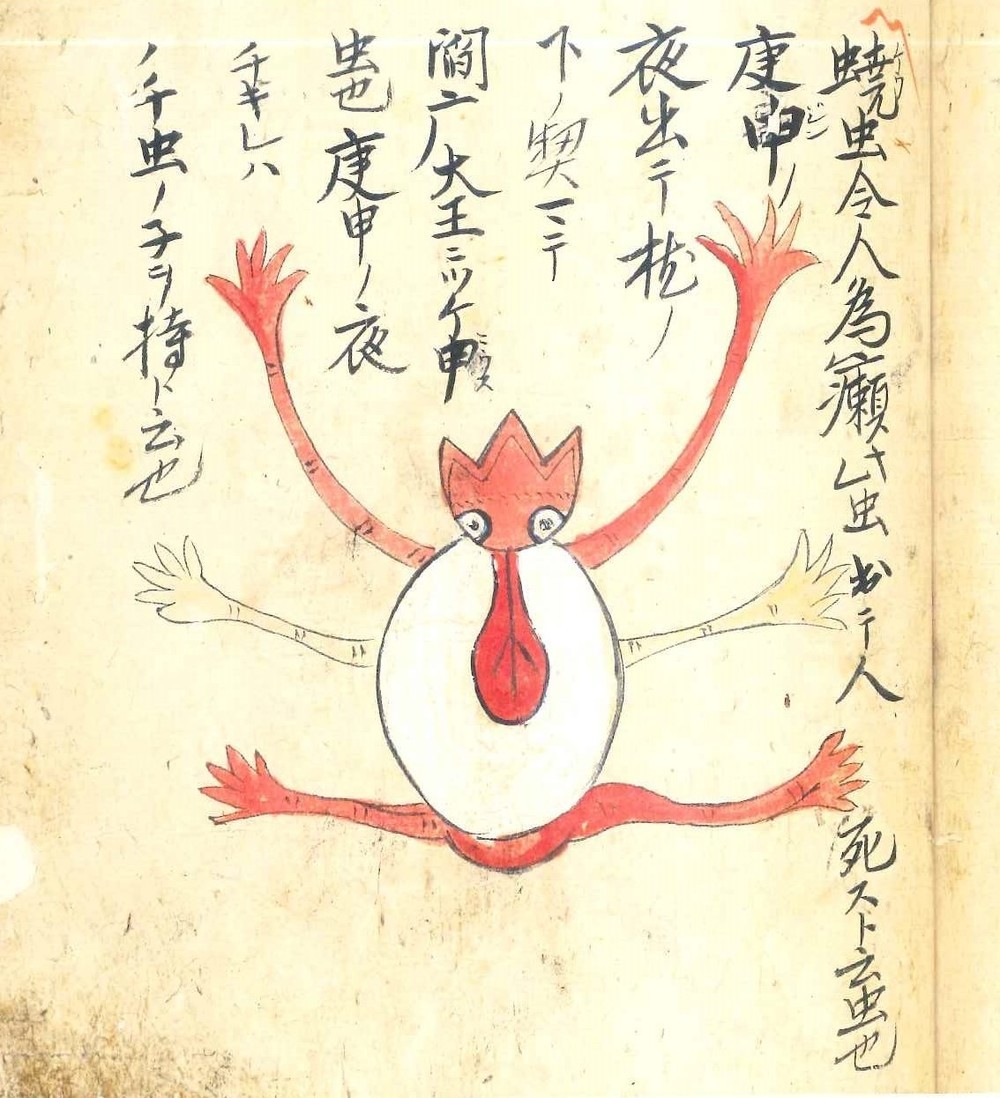 蟯虫令人為癩此虫出テ人死スト云虫也
庚申ノ
夜出テ枕ノ
下ノ テ
閻广大王ニツケ申
虫也庚申ノ夜
チキレハ
ノチ虫ノ子ヲ持ト云也